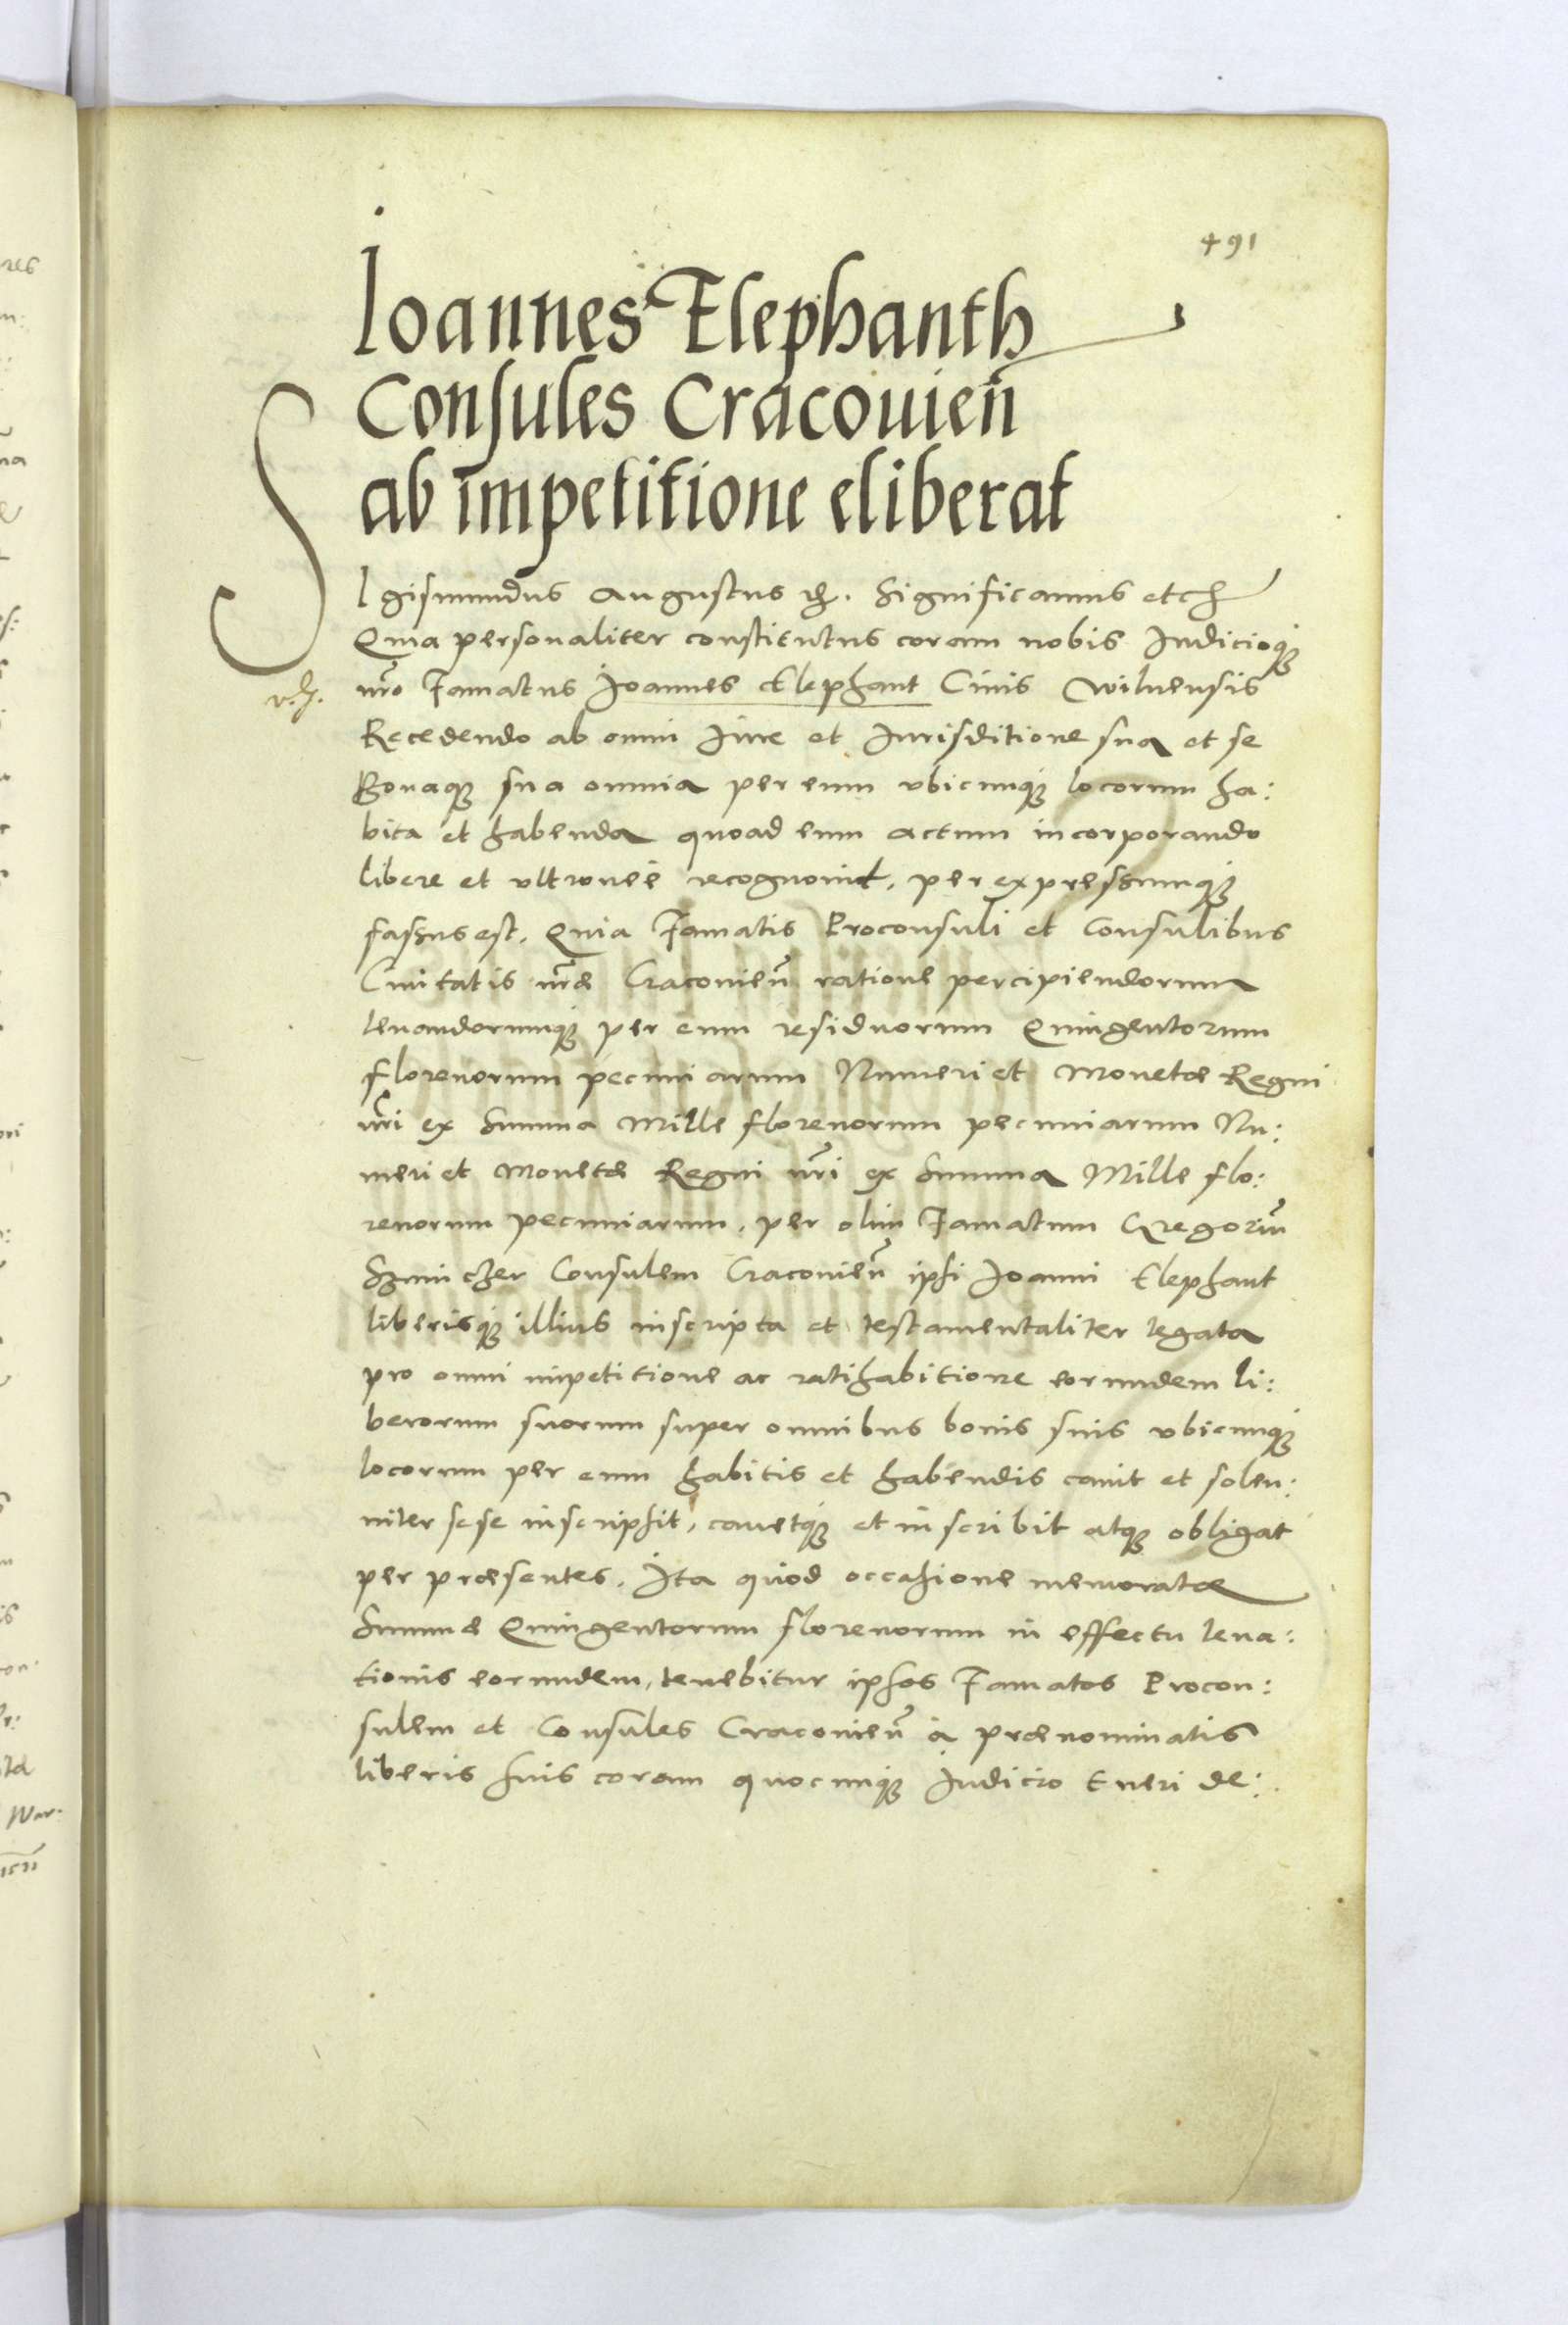 491
Ioannes Elephanth
Consules Cracouien̄
ab impetitione eliberat
SIgismundus Augustus etc. Significamus etc
Quia personaliter constitutus coram nobis Iudicioq̃
nr̃o Famatus Ioannes Elephant Ciuis Wilnensis
Recedendo ab omni Iure et Iurisditione sua et se
Bonaq̃ sua omnia per eum vbicunq̃ locorum ha:
bita et habenda quoad eum actum incorporando
libere et vltroneè recognouit, per expressumq̃
fassus est. Quia Famatis Proconsuli et Consulibus
Ciuitatis nr̃æ Cracouien̄ ratione percipiendorum
leuandorumq̃ per eum residuorum Quingentorum
florenorum pecuniarum Numeri et Monetæ Regni
nr̃i ex Summa Mille florenorum pecuniarum Nu:
meri et Monetæ Regni nr̃i ex Summa Mille flo:
renorum pecuniarum, per olim Famatum Gregoriũ
Szmiczer Consulem Cracouien̄ ipsi Ioanni Elephant
liberisq̃ illius inscripta et testamentaliter legata
pro omni impetitione ac ratihabitione eorundem li:
berorum suorum super omnibus bonis suis vbicunq̃
locorum per eum habitis et habendis cauit et solen:
niter sese inscripsit, cauetq̃ et inscribit atq̃ obligat
per præsentes. Ita quòd occasione memoratæ
Summæ Quingentorum florenorum in effectu leua:
tionis eorundem, tenebitur ipsos Famatos Procon:
sulem et Consules Cracouien̄ à prænominatis
liberis suis coram quocunq̃ Iudicio tueri de: